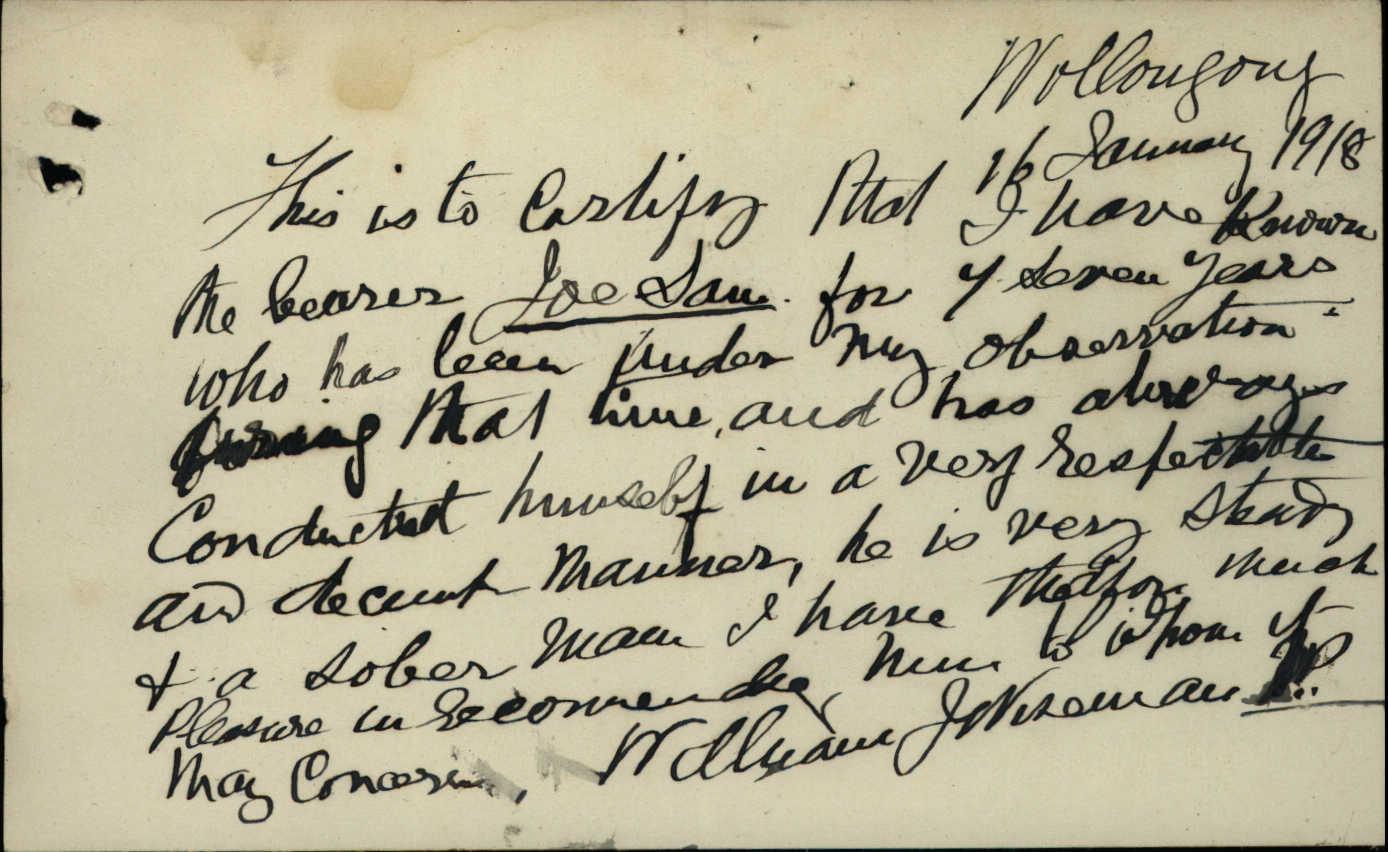 Wollongong
16 January 1918
This is to Certify that I have Known
the bearer Joe Sam. for 7 seven years
who has been under my observation
during that time, and has always
Conducted himself in a very respectable
and decent manner, he is very steady
& a sober man I have therfor much
Pleasure in recommending him to whom it
May Concern, William J Wiseman JP